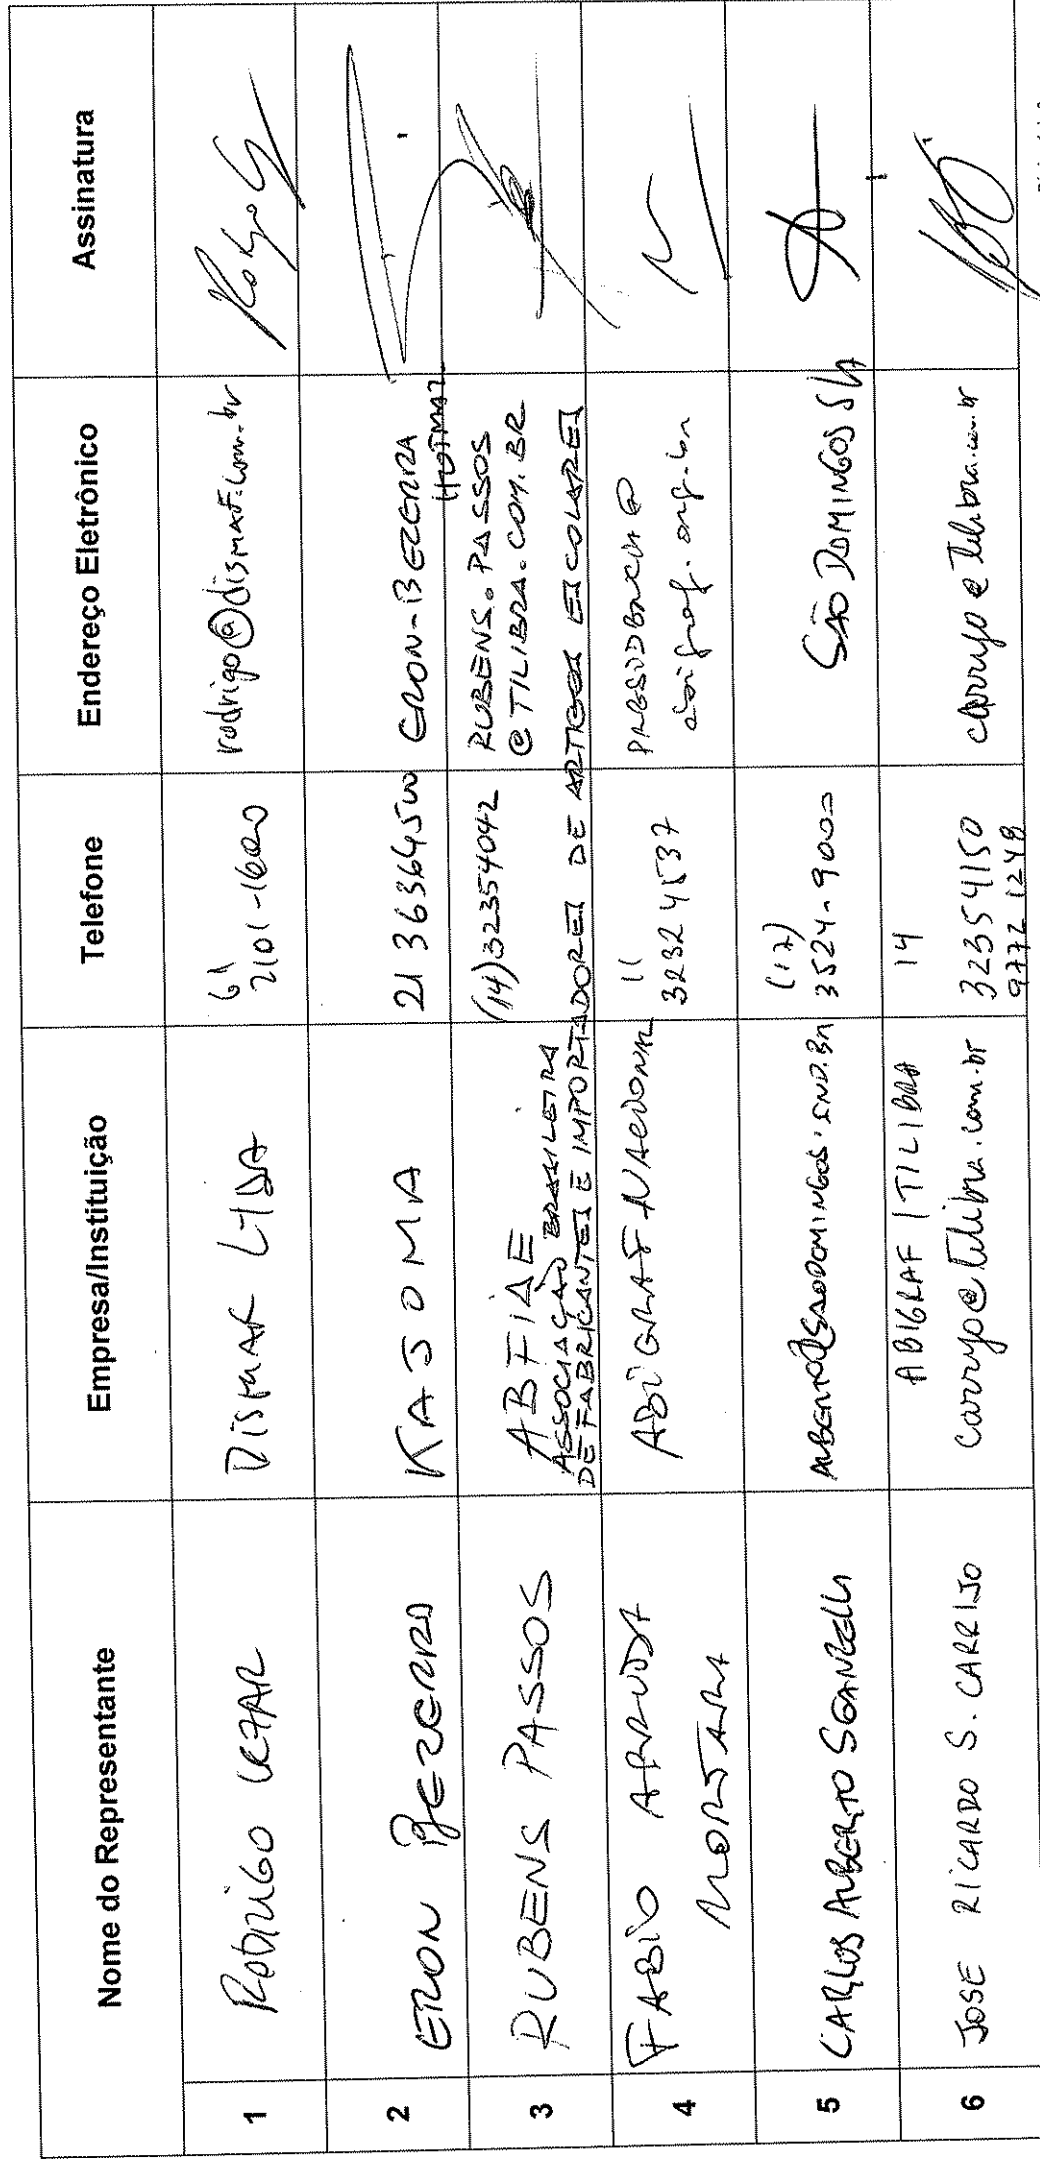 Nome do Representante Empresa/Instituição Telefone Endereço Eletrônico Assinatura
1 Rodrigo Cezar DISMAF LTDA 61 2101-1600 rodrigo@dismaf.com.br
2 ERON BEZERRA KAJOMA 21 36364500 ERON-BEZERRA HOTMAIL
3 RUBENS PASSOS ABFIAE (14)32354042 RUBENS.PASSOS
@TILIBRA.COM.BR
ASSOCIAÇÃO BRASILEIRA
DE FABRICANTES E IMPORTADORES DE ARTIGOS ESCOLARES
4 FABIO ARRUDA
MORTARA ABIGRAF NACIONAL 11
3232 4537 @
abigraf.org.br
5 CARLOS ALBERTO ALBERTO@SAODOMINGOS.IND.BR (17)
3524-9000 SÃO DOMINGOS S/A
6 JOSE RICARDO S. CARRIJO ABIGRAF / TILIBRA
carryo@tilibra.com.br 14
32354150
9772 1248 carryo@tilibra.com.br